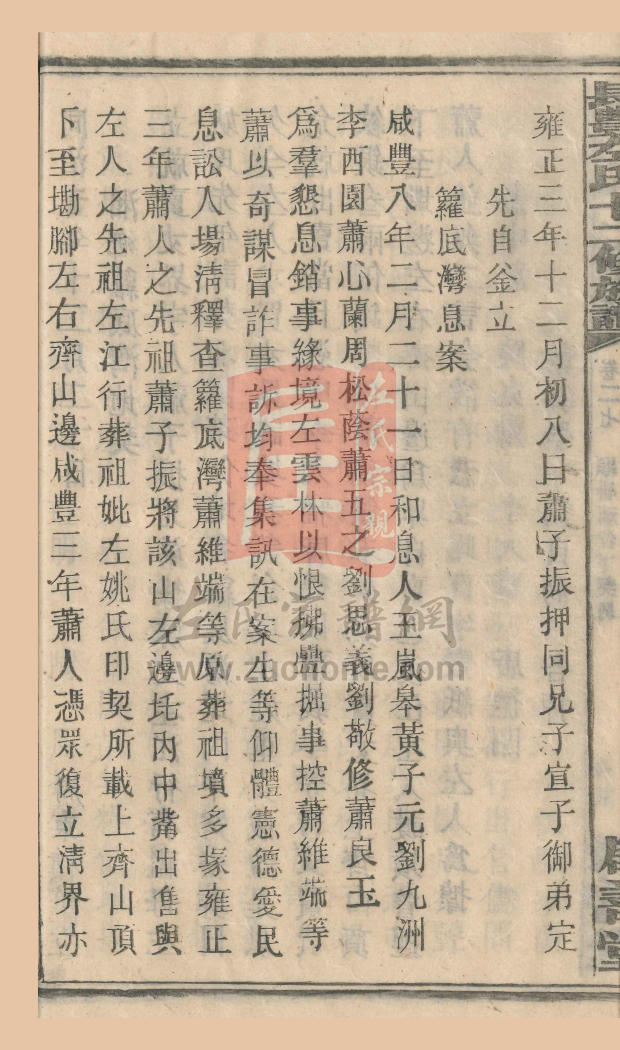 長豐左氏十二修族譜
卷二七
雍正三年十二月初八日蕭子振押同兄子宣子御弟定
先自筆立
籮底灣息案
咸豐八年二月二十一日和息人王嵐皋黃子元劉九洲
李西園蕭心蘭周松蔭蕭五之劉思義劉敬修蕭良玉
爲羣懇息銷事緣境左雲林以恨拂壘掘事控蕭維端等
蕭以奇謀冒詐事訴均奉集訊在案生等仰體憲德愛民
息訟入場淸釋查籮底灣蕭維端等原葬祖墳多塚雍正
三年蕭人之先祖蕭子振將該山左邊圫內中嘴出售與
左人之先祖左江行葬祖妣左姚氏印契所載上齊山頂
下至墈腳左右齊山邊咸豐三年蕭人憑眾復立淸界亦
左氏宗親
左氏宗譜網
www.zuchome.com